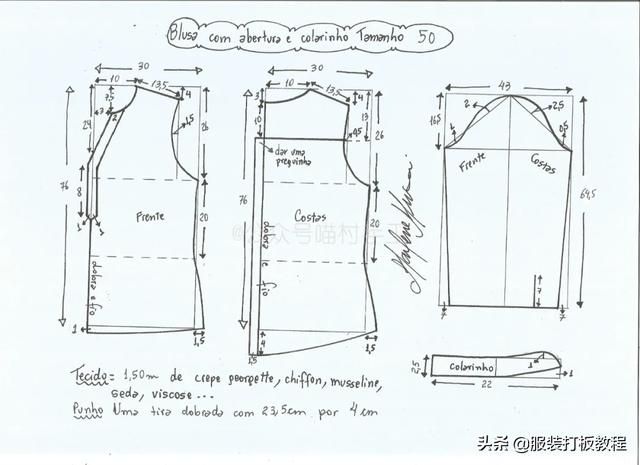 Blusa com abertura e colarinho Tamanho 50
30
10
13,5
4
7,5
3
2
24
1,5
26
76
8
Frente
20
1
1
dobra e fio
1
1,5
30
10
13,5
3
4
10
13
0,5
26
dar uma
preguinha
76
Costas
20
dobra e fio
1,5
4
1,5
43
16,5
2
2,5
1
0,5
Frente
Costas
64,5
7
7
7
2,5
Colarinho
1
1
22
Tecido = 1,50m de crepe georgette, chiffon, musseline,
seda, viscose ...
Punho Uma tira dobrada com 23,5cm por 4 cm
头条 @服装打板教程